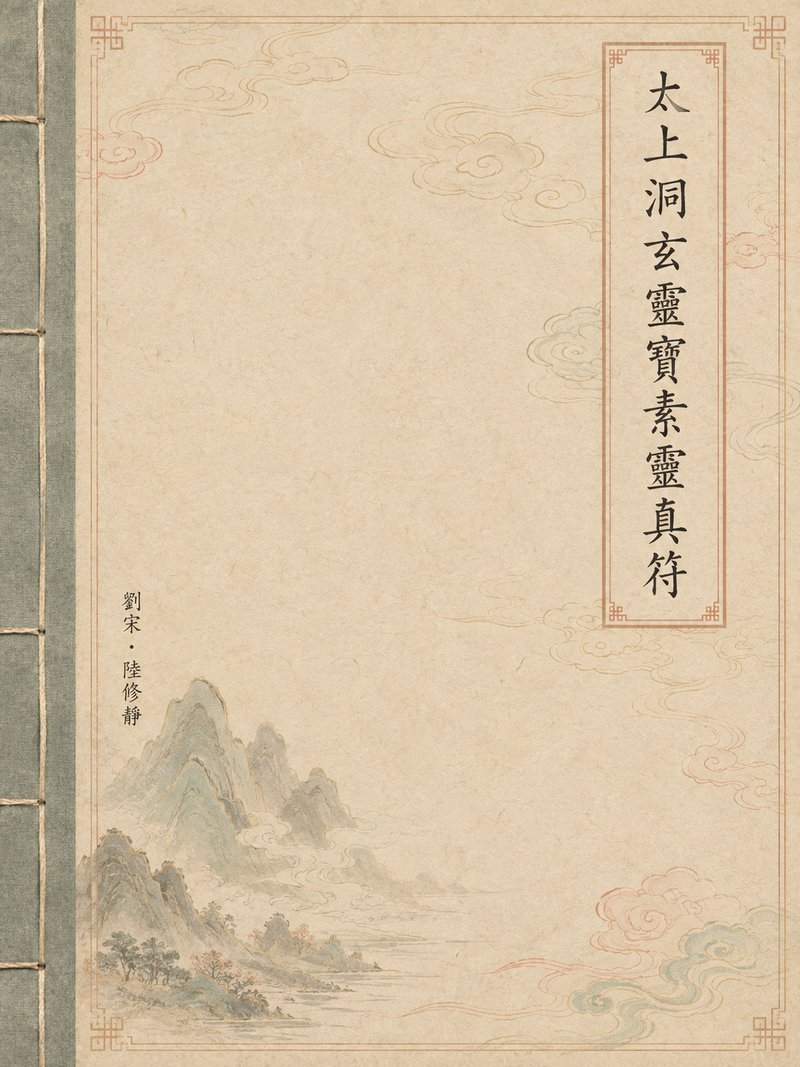 太上洞玄靈寶素靈真符
劉宋·陸修靜